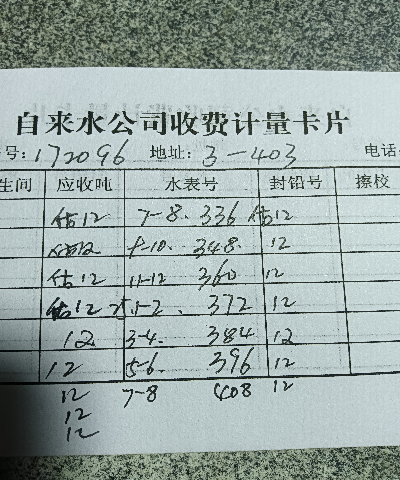 自来水公司收费计量卡片
号:172096 地址: 3-403 电话
生间 应收吨 水表号 封铅号 擦校
估12 7-8. 336 估12
估12 9-10. 348. 12
估12 11-12 360 12
估12 1-2. 372 12
12 3-4. 384 12
12 5-6. 396 12
12 7-8 408 12
12
12